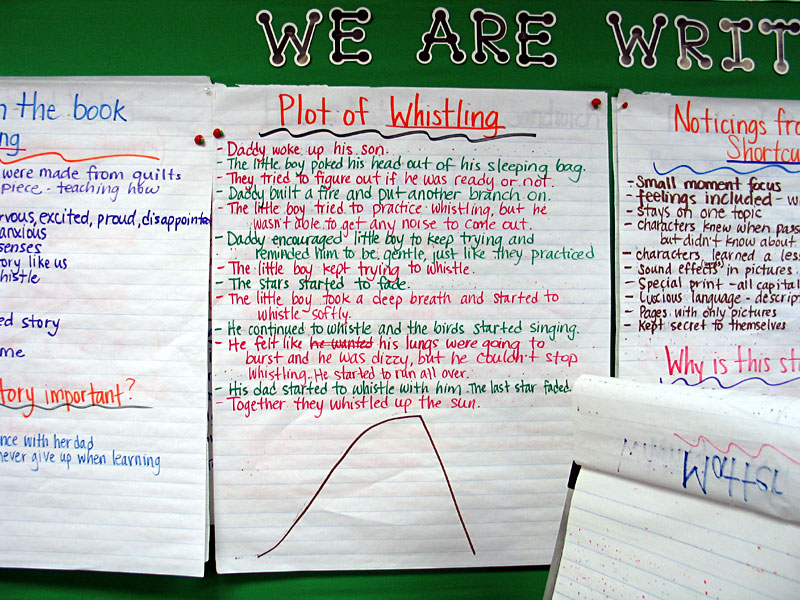 WE ARE WRIT
n the book
ng
were made from quilts
piece - teaching how
rvous, excited, proud, disappointe
anxious
senses
tory like us
histle
ed story
me
tory important?
nce with her dad
never give up when learning
Plot of Whistling
- Daddy woke up his son.
- The little boy poked his head out of his sleeping bag.
- They tried to figure out if he was ready or not.
- Daddy built a fire and put another branch on.
- The little boy tried to practice whistling, but he
wasn't able to get any noise to come out.
- Daddy encouraged little boy to keep trying and
reminded him to be gentle, just like they practiced
- The little boy kept trying to whistle.
- The stars started to fade.
- The little boy took a deep breath and started to
whistle softly.
- He continued to whistle and the birds started singing.
- He felt like he wanted his lungs were going to
burst and he was dizzy, but he couldn't stop
whistling. He started to run all over.
- His dad started to whistle with him. The last star faded.
- Together they whistled up the sun.
Noticings fro
Shortcu
- Small moment focus
- feelings included - w
- stays on one topic
- characters knew when pass
but didn't know about
- characters learned a less
- sound effects (words) in pictures
- Special print - all capital
- Luscious language - descript
- Pages with only pictures
- Kept secret to themselves
Why is this sto